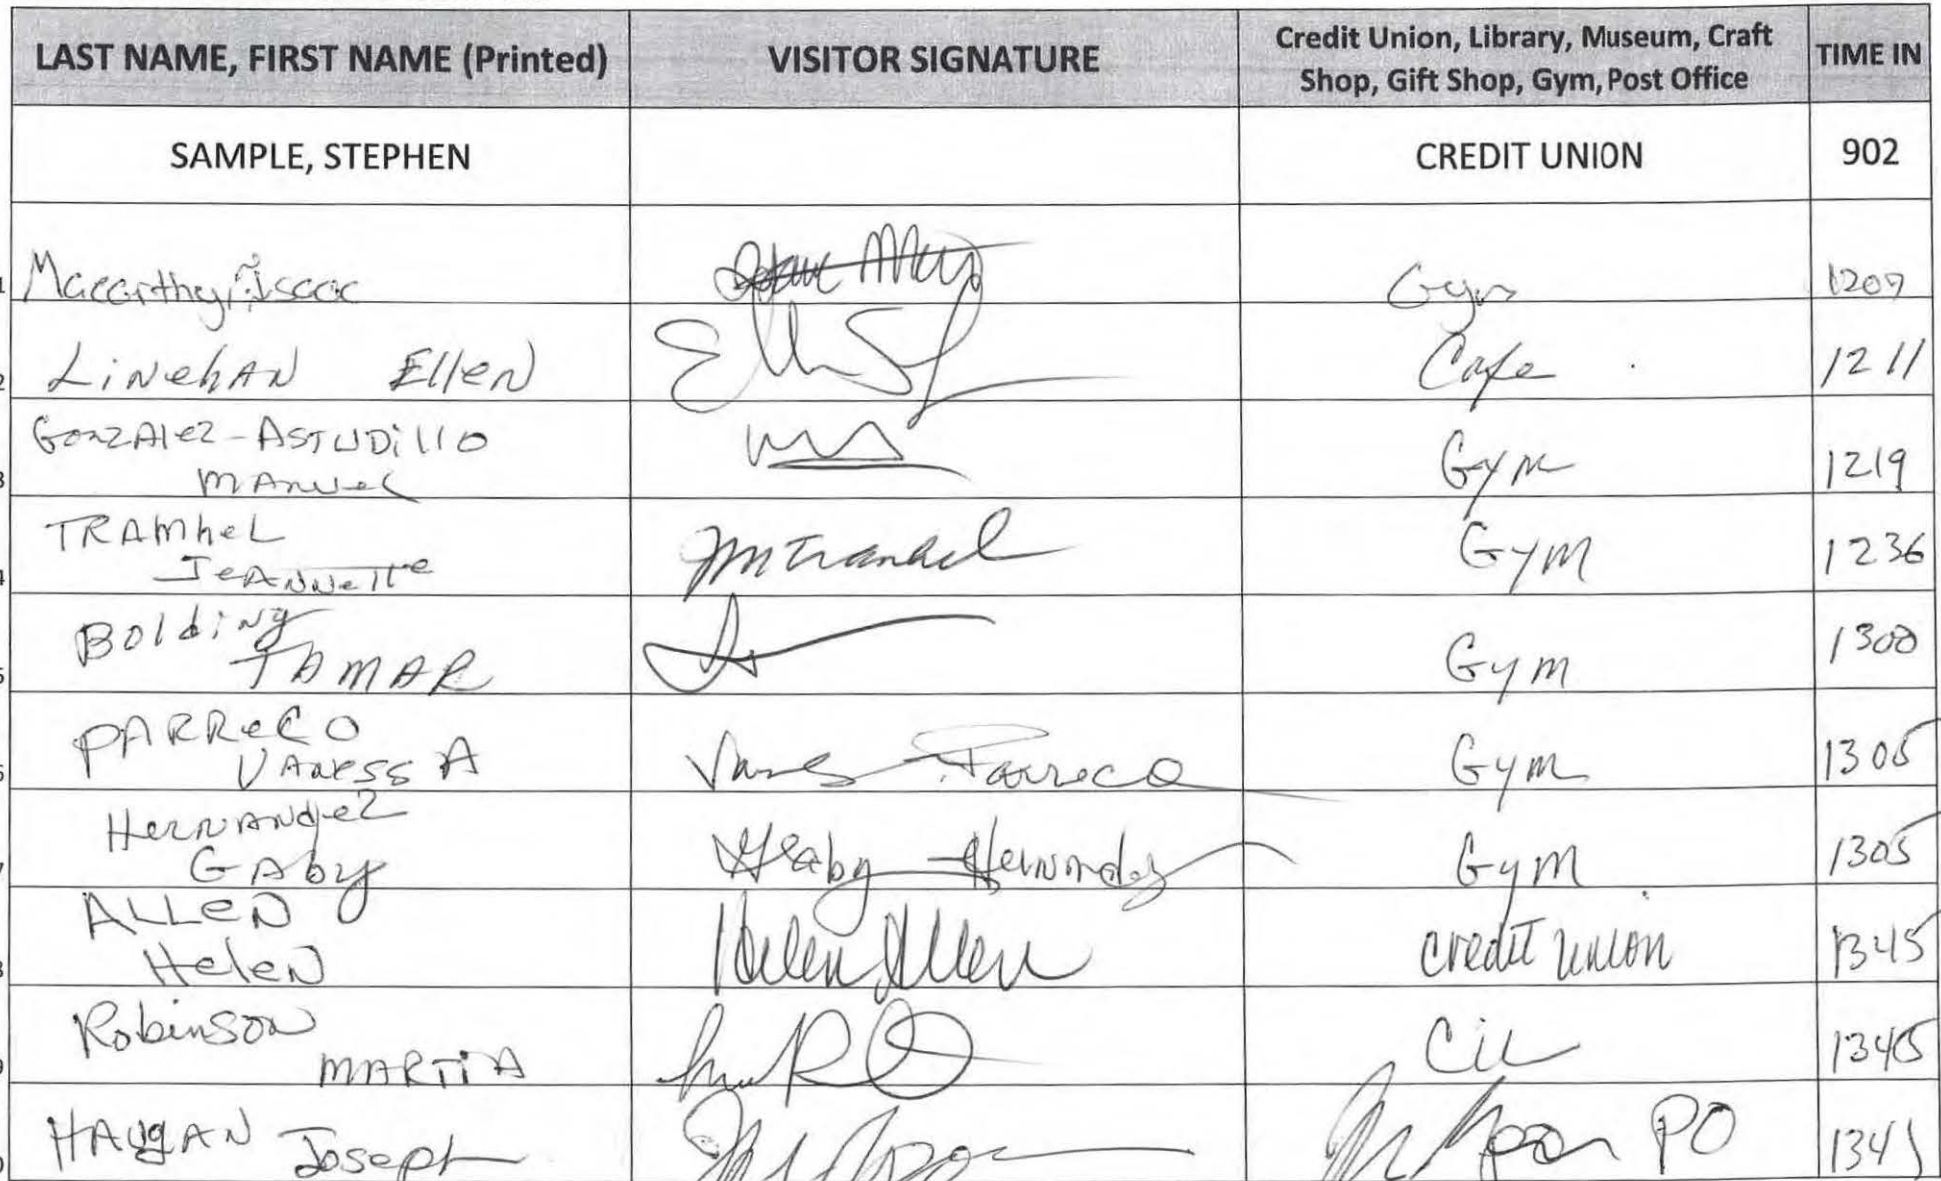 LAST NAME, FIRST NAME (Printed) VISITOR SIGNATURE Credit Union, Library, Museum, Craft Shop, Gift Shop, Gym, Post Office TIME IN
SAMPLE, STEPHEN CREDIT UNION 902
Maccarthy, Isaac Gym 1207
LiNehAN EllEN Cafe 1211
GonzAlez-ASTUDillO
MANuel Gym 1219
TRAMheL
JeANNette JM Tramhel GYM 1236
Bolding
TAMAR Gym 1300
PARReCO
VANESSA Vanes Parreco Gym 1305
HerNANdez
GAby Gaby Hernandez GyM 1305
ALLeN
HeleN Helen Allen Credit Union 1345
RobinSon
MARTiA 1345
HAygAN Joseph PO